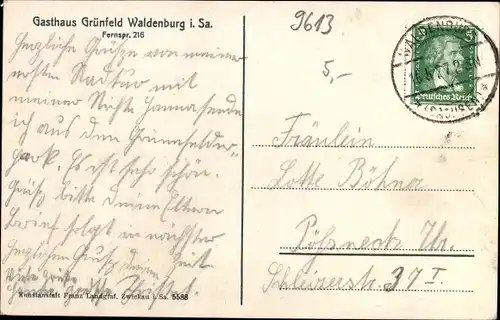 Gasthaus Grünfeld Waldenburg i. Sa.
Fernspr. 216
9613
5,-
WALDENBURG
(SACHSEN)
Deutsches Reich
Herzliche Grüße von meiner
ersten Radtur mit
meiner Nichte Hanna sende
ich aus dem Grünfelder
Park. Es ist sehr schön.
Grüß bitte deine Eltern
Brief folgt in nächster
Zeit.
herzlichen Gruß deine
Viele Grüße
Fräulein
Lotte Böhner
Pößneck Th.
Schleizerstr. 37 I.
Kunstanstalt Franz Landgraf, Zwickau i. Sa. 5588